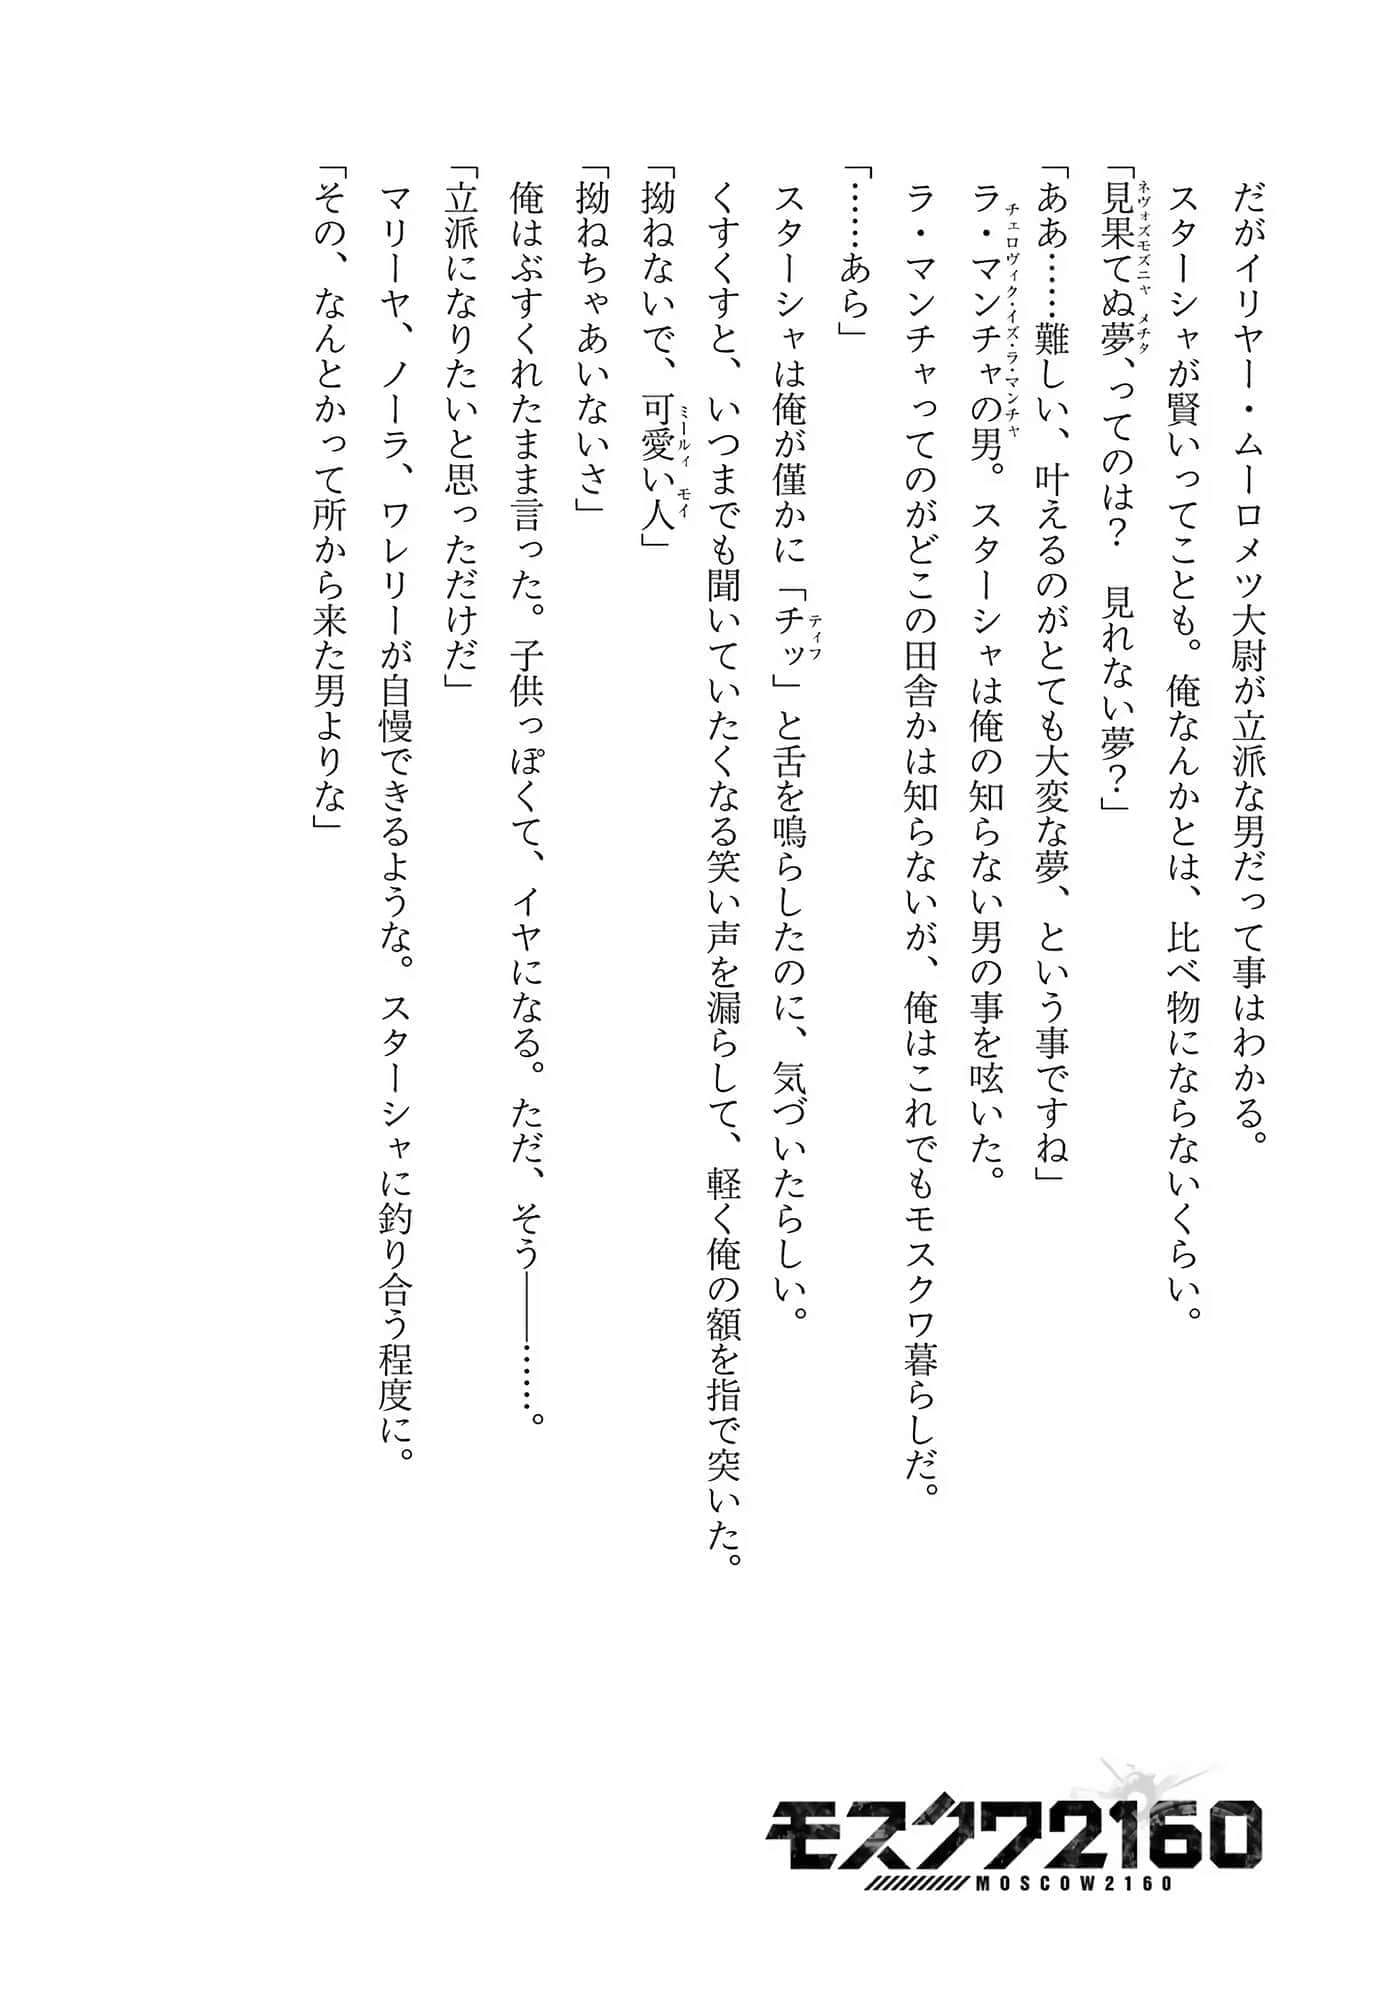 だがイリヤー・ムーロメツ大尉が立派な男だって事はわかる。
スターシャが賢いってことも。俺なんかとは、比べ物にならないくらい。
「見果てぬ夢、ってのは？　見れない夢？」
ネヴォズモズニャ メチタ
「ああ……難しい、叶えるのがとても大変な夢、という事ですね」
ラ・マンチャの男。スターシャは俺の知らない男の事を呟いた。
チェロヴィク・イズ・ラ・マンチャ
ラ・マンチャってのがどこの田舎かは知らないが、俺はこれでもモスクワ暮らしだ。
「……あら」
スターシャは俺が僅かに「チッ」と舌を鳴らしたのに、気づいたらしい。
ティフ
くすくすと、いつまでも聞いていたくなる笑い声を漏らして、軽く俺の額を指で突いた。
「拗ねないで、可愛い人」
ミールィ モイ
「拗ねちゃあいないさ」
俺はぶすくれたまま言った。子供っぽくて、イヤになる。ただ、そう――……。
「立派になりたいと思っただけだ」
マリーヤ、ノーラ、ワレリーが自慢できるような。スターシャに釣り合う程度に。
「その、なんとかって所から来た男よりな」
モスクワ2160
MOSCOW2160